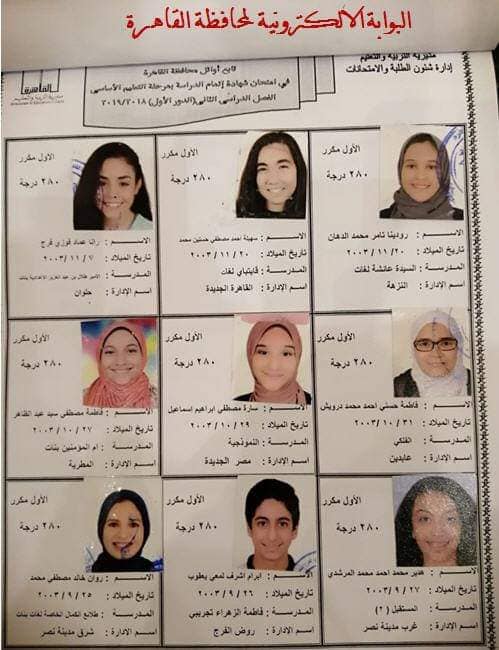 البوابة الالكترونية لمحافظة القاهرة
مديرية التربية والتعليم
إدارة شئون الطلبة والامتحانات
القاهرة
مديرية التربية والتعليم
تابع أوائل محافظة القاهرة
في امتحان شهادة إتمام الدراسة بمرحلة التعليم الأساسي
الفصل الدراسي الثاني (الدور الأول) ٢٠١٩/٢٠١٨
الأول مكرر
٢٨٠ درجة
الاســـم : رودينا تامر محمد الدهان
تاريخ الميلاد : ٢٠ / ١١ / ٢٠٠٣
المـدرسـة : السيدة عائشة لغات
اسم الإدارة : النزهة
الأول مكرر
٢٨٠ درجة
الاســـم : سهيلة احمد مصطفي حسنين محمد
تاريخ الميلاد : ٢٠ / ١١ / ٢٠٠٣
المـدرسـة : قايتباي لغات
اسم الإدارة : القاهرة الجديدة
الأول مكرر
٢٨٠ درجة
الاســـم : رانا عماد فوزي فرج
تاريخ الميلاد : ٧ / ١١ / ٢٠٠٣
المـدرسـة : الأمير طلال بن عبد العزيز الاعدادية بنات
اسم الإدارة : حلوان
الأول مكرر
٢٨٠ درجة
الاســـم : فاطمة حسني احمد محمد درويش
تاريخ الميلاد : ٣١ / ١٠ / ٢٠٠٣
المـدرسـة : الفلكي
اسم الإدارة : عابدين
الأول مكرر
٢٨٠ درجة
الاســـم : سارة مصطفي ابراهيم إسماعيل
تاريخ الميلاد : ٢٩ / ١٠ / ٢٠٠٣
المـدرسـة : النموذجية
اسم الإدارة : مصر الجديدة
الأول مكرر
٢٨٠ درجة
الاســـم : فاطمة مصطفي سيد عبد الظاهر
تاريخ الميلاد : ٢٧ / ١٠ / ٢٠٠٣
المـدرسـة : ام المؤمنين بنات
اسم الإدارة : المطرية
الأول مكرر
٢٨٠ درجة
الاســـم : هدير محمد احمد محمد المرشدي
تاريخ الميلاد : ٢٧ / ٩ / ٢٠٠٣
المـدرسـة : المستقبل (٢)
اسم الإدارة : غرب مدينة نصر
الأول مكرر
٢٨٠ درجة
الاســـم : ابرام اشرف لمعي يعقوب
تاريخ الميلاد : ٢٦ / ٩ / ٢٠٠٣
المـدرسـة : فاطمة الزهراء تجريبي
اسم الإدارة : روض الفرج
الأول مكرر
٢٨٠ درجة
الاســـم : روان خالد مصطفي محمد
تاريخ الميلاد : ٢٥ / ٩ / ٢٠٠٣
المـدرسـة : طلائع الكمال الخاصة لغات بنات
اسم الإدارة : شرق مدينة نصر